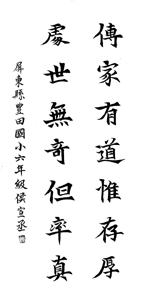 傳家有道惟存厚
處世無奇但率真
屏東縣豐田國小六年級侯宣丞